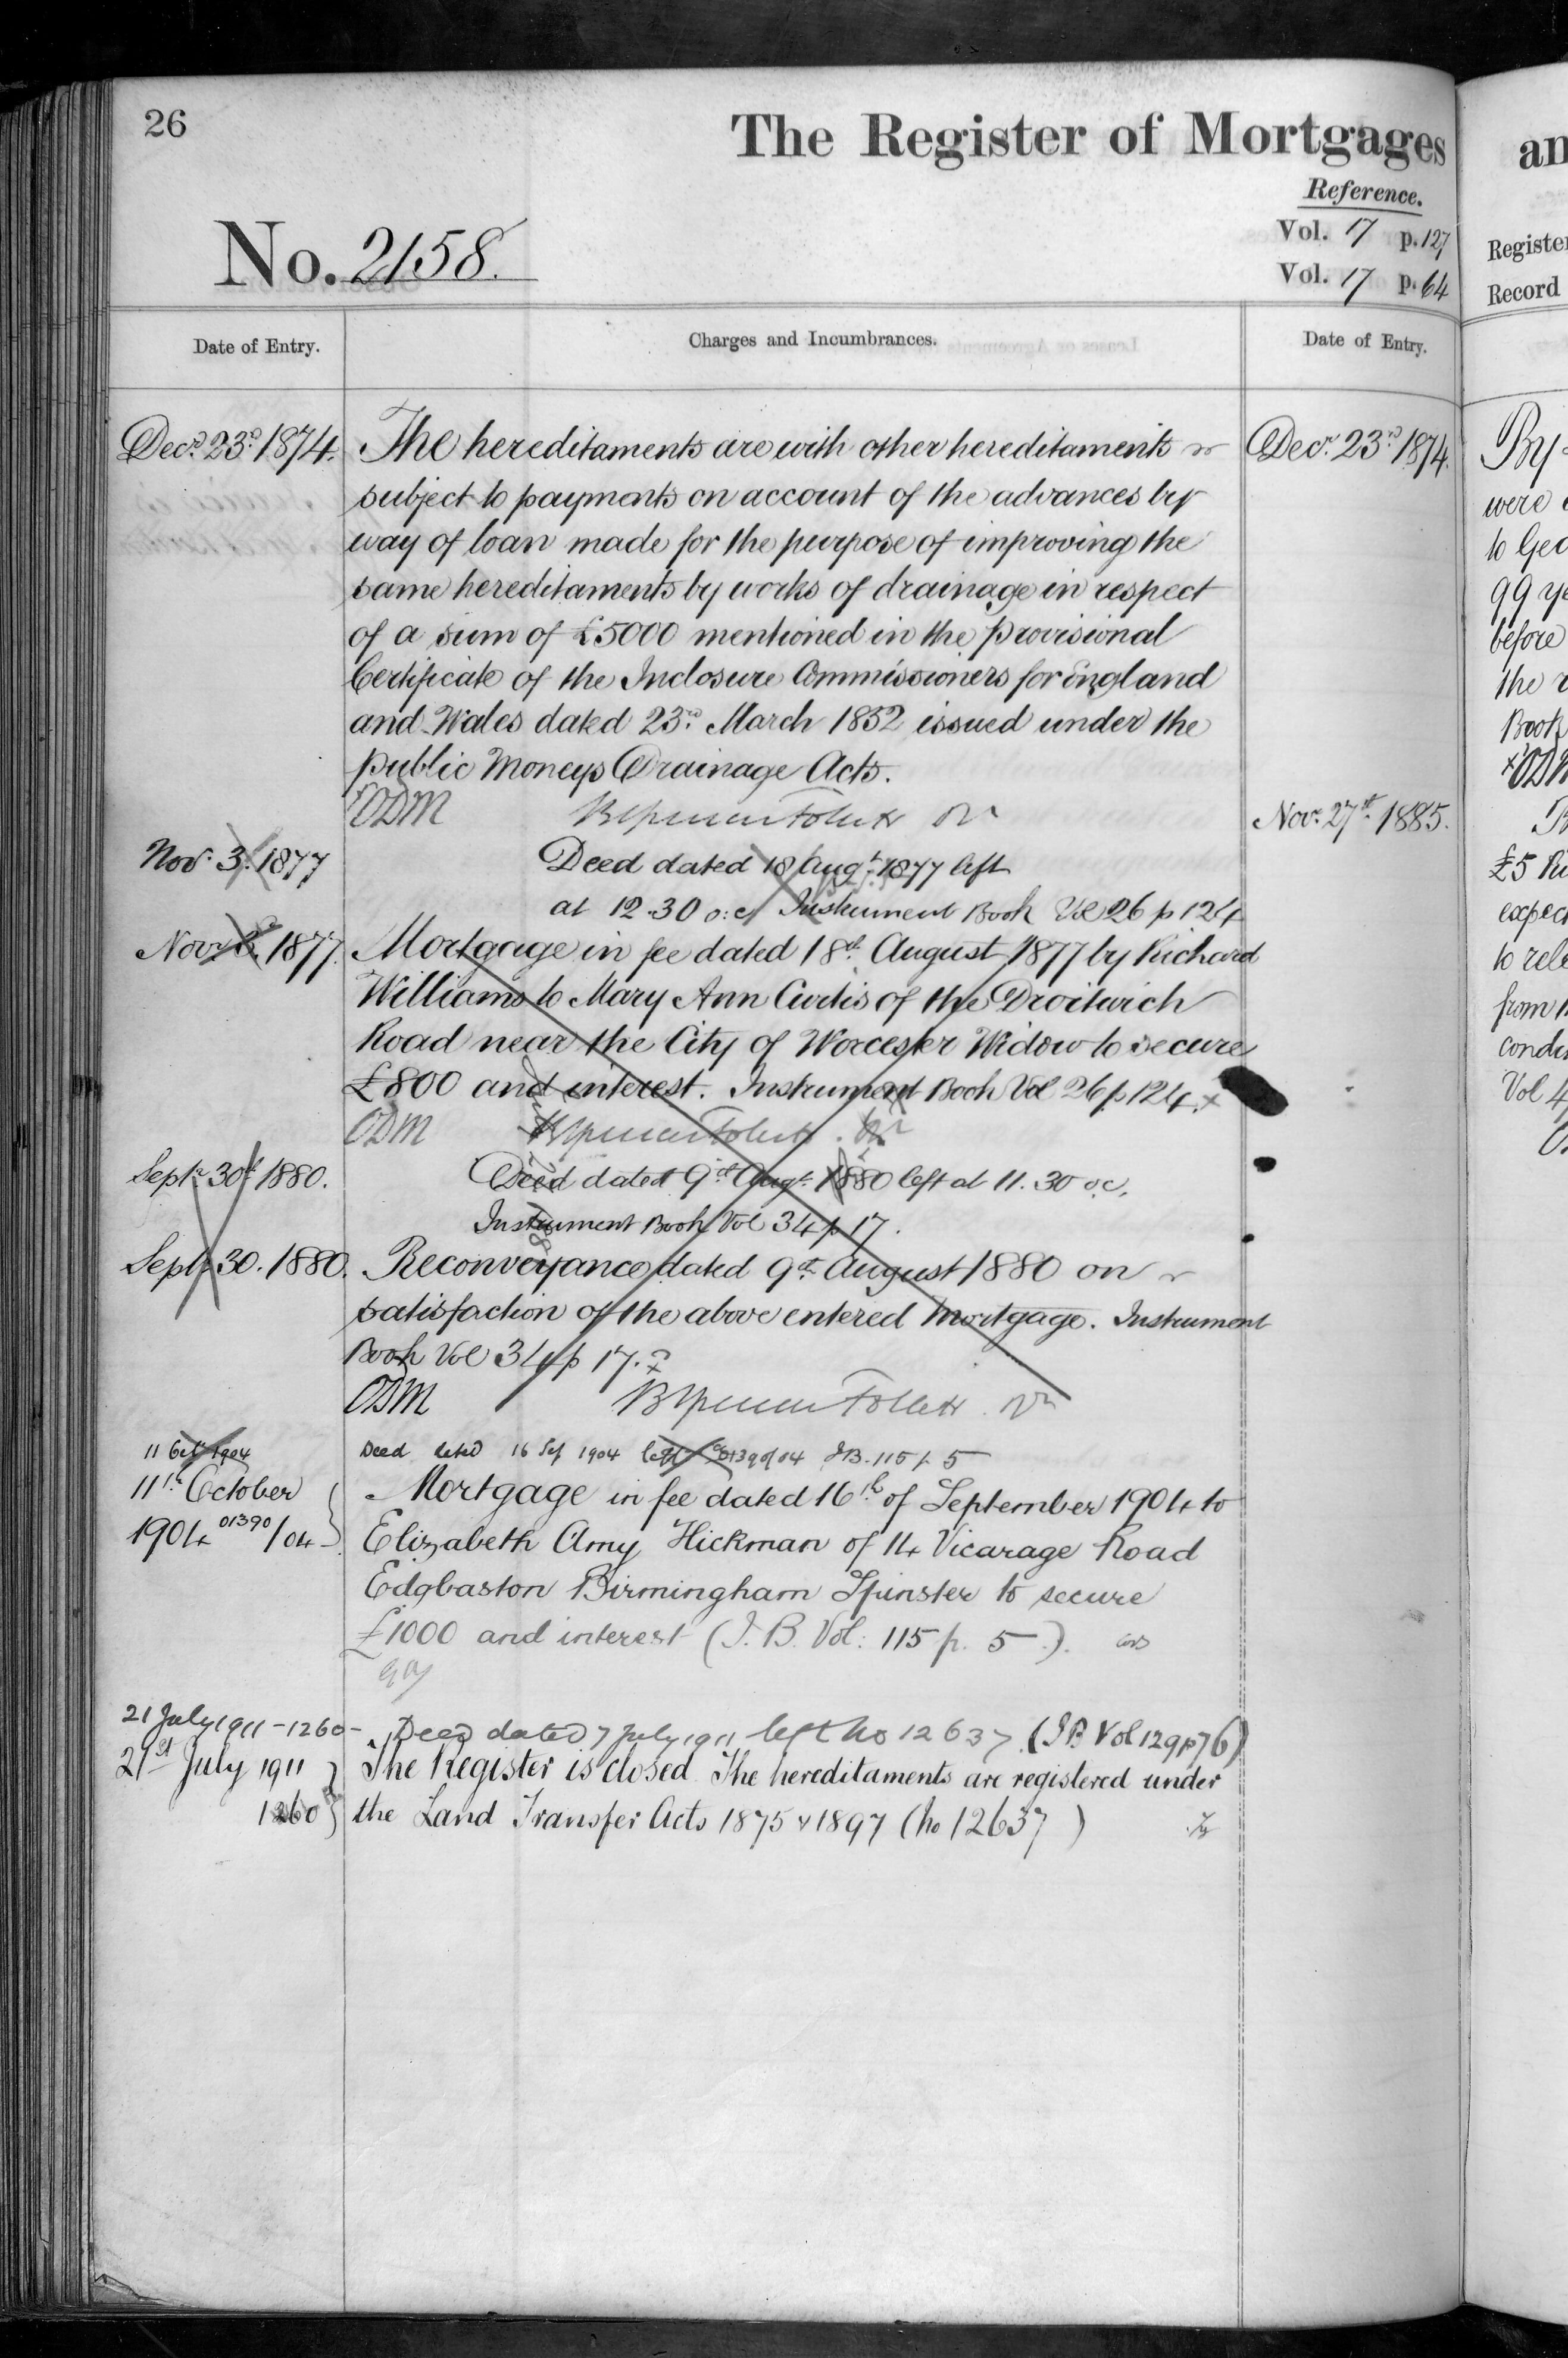 26
The Register of Mortgages
an
Reference.
Vol. 17 p. 127
Vol. 17 p. 64
No. 2158.
Register
Record
Date of Entry.
Charges and Incumbrances.
Date of Entry.
Decr. 23d. 1874.
The hereditaments are with other hereditaments
subject to payments on account of the advances by
way of loan made for the purpose of improving the
same hereditaments by works of drainage in respect
of a sum of £5000 mentioned in the provisional
Certificate of the Inclosure Commissioners for England
and Wales dated 23rd. March 1852 issued under the
public Moneys Drainage Acts.
ODM
Nov. 3. 1877
Deed dated 18 Augt. 1877 left
at 12.30 o:c/ Instrument Book Vol 26 p 124
Novr. 3. 1877.
Mortgage in fee dated 18th. August 1877 by Richard
Williams to Mary Ann Curtis of the Droitwich
Road near the City of Worcester Widow to secure
£800 and interest. Instrument Book Vol 26 p 124. x
ODM
Septr. 30th 1880.
Deed dated 9th Augt. 1880 left at 11.30 o.c.
Instrument Book Vol 34 p 17.
Septr. 30. 1880.
Reconveyance dated 9th. August 1880 on
satisfaction of the above entered Mortgage. Instrument
Book Vol 34 p 17. x
ODM
11 Oct 1904
Deed dated 16 Sep 1904 left 01390/04 I B. 115 p. 5
11th October
1904 01390/04
Mortgage in fee dated 16th of September 1904 to
Elizabeth Amy Hickman of 14 Vicarage Road
Edgbaston Birmingham Spinster to secure
£1000 and interest (I. B. Vol: 115 p. 5.).
21 July 1911 - 1260 -
Deed dated 7 July 1911 left No 12637 (I B Vol 129 p 76)
21st July 1911
1260
The Register is closed. The hereditaments are registered under
the Land Transfer Acts 1875 & 1897 (No 12637)
Decr. 23rd 1874.
Novr. 27th. 1885.
By
were
to Geo
99 ye
before
the
Book
x ODM
£5
expec
to rele
from
condi
Vol 4